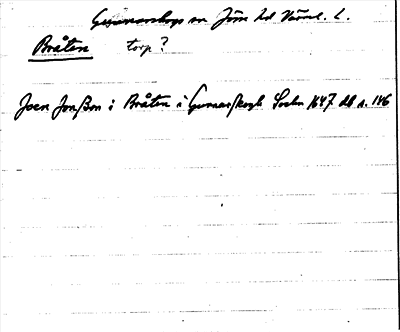 Gunnarskogs sn Jöss hd Värml. l.
Bråten torp?
Joen Jonsson i Bråten i Gunnarskogh Sochn 1647 db s. 146